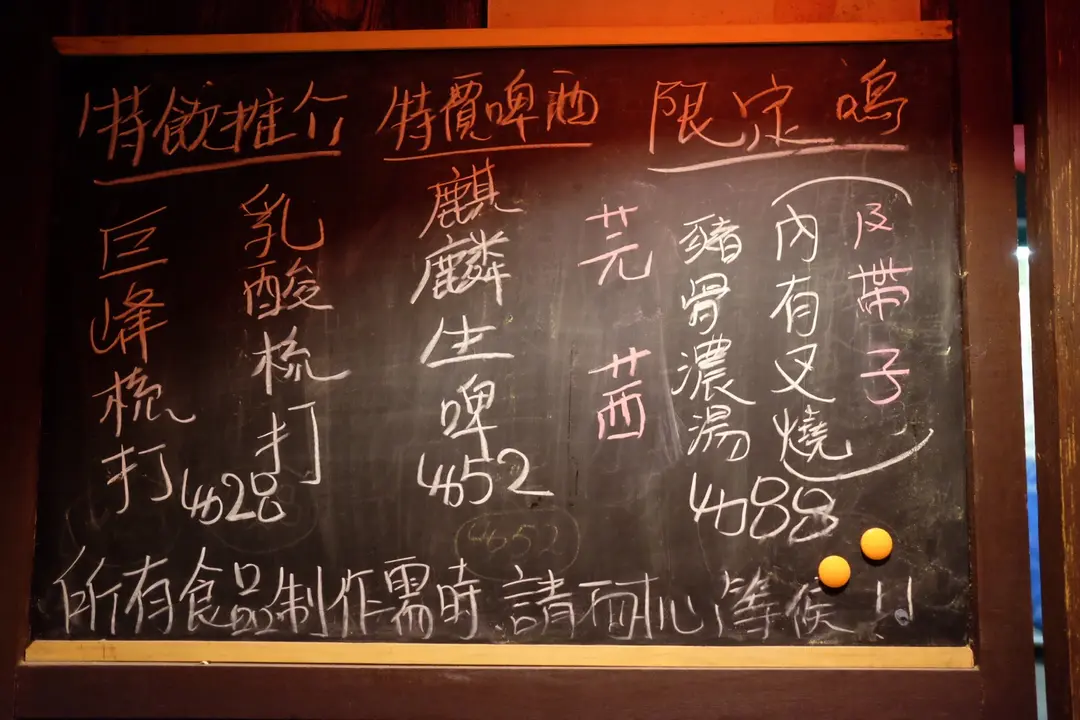 特飲推介
巨峰梳打
乳酸梳打
$28
特價啤酒
麒麟生啤
$52
$52
限定鳴
芫茜
豬骨濃湯
(內有叉燒
及帶子)
$88
所有食品制作需時,請耐心等侯!!